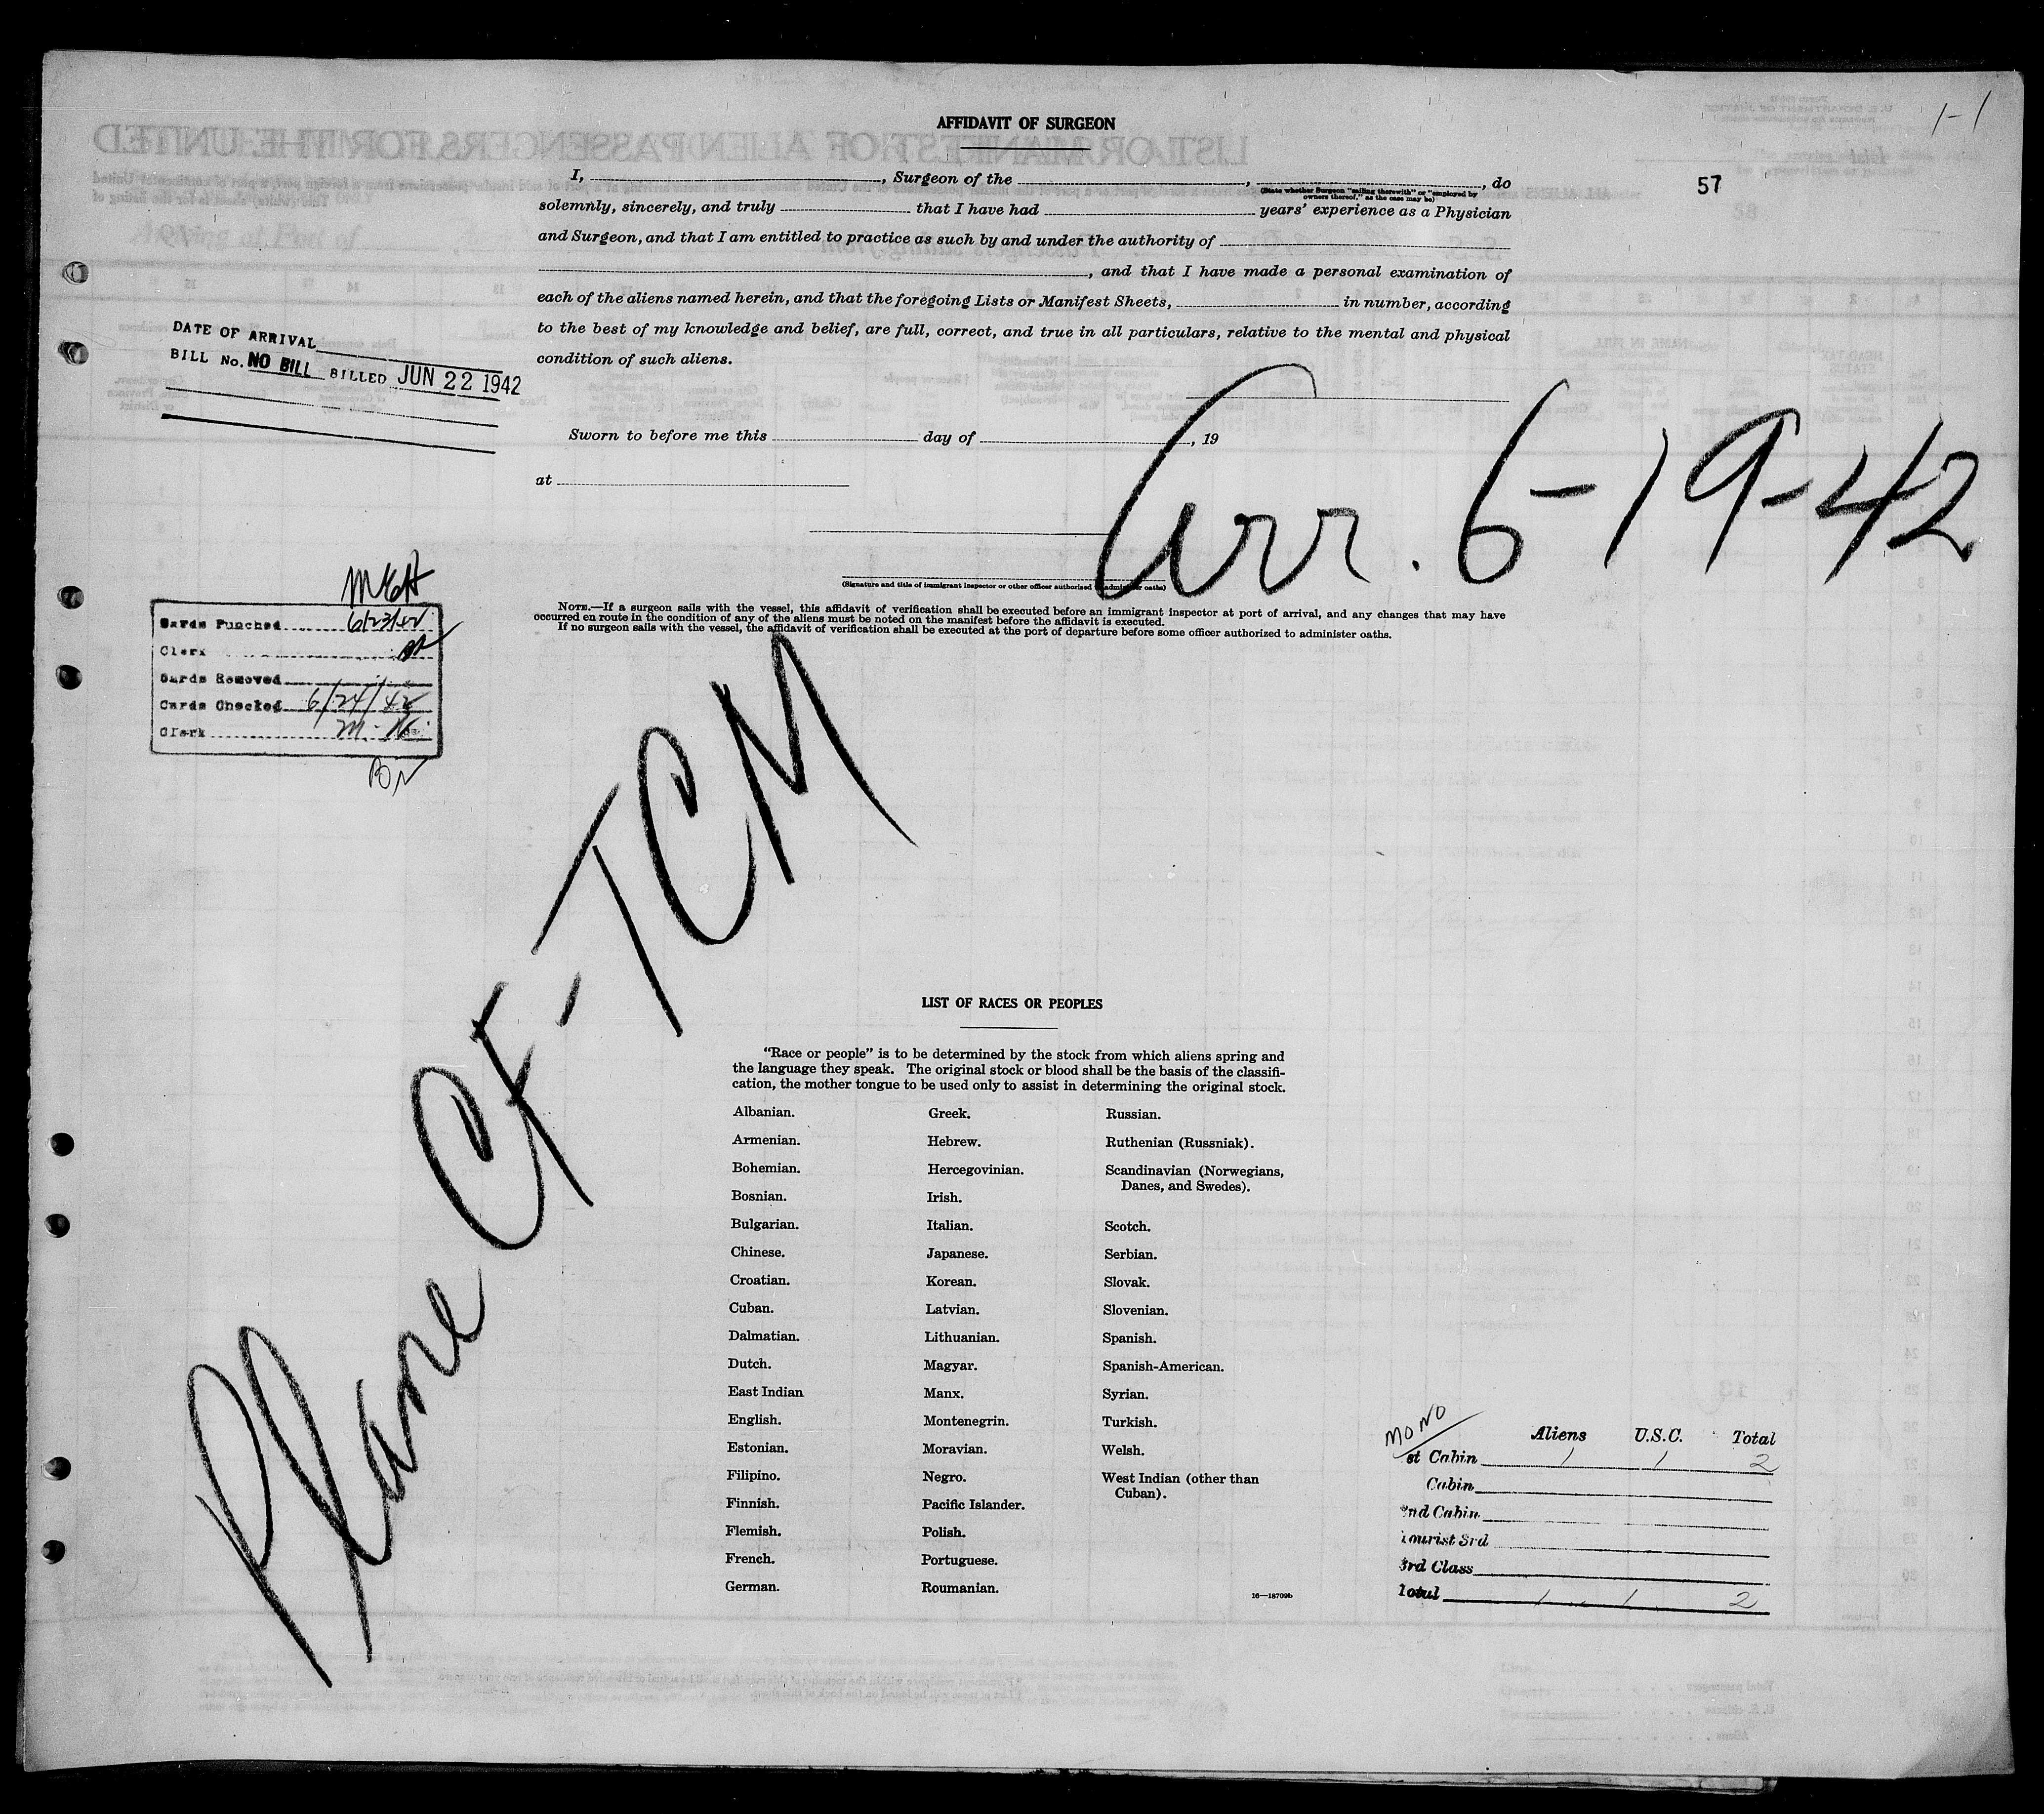 1-1
57
AFFIDAVIT OF SURGEON
I, , Surgeon of the , , do
(State whether Surgeon "sailing therewith" or "employed by
owners thereof," as the case may be)
solemnly, sincerely, and truly that I have had years' experience as a Physician
and Surgeon, and that I am entitled to practice as such by and under the authority of
, and that I have made a personal examination of
each of the aliens named herein, and that the foregoing Lists or Manifest Sheets, in number, according
to the best of my knowledge and belief, are full, correct, and true in all particulars, relative to the mental and physical
condition of such aliens.
DATE OF ARRIVAL
BILL No. NO BILL BILLED JUN 22 1942
Sworn to before me this day of , 19
at
Arr. 6-19-42
(Signature and title of immigrant inspector or other officer authorized to administer oaths)
NOTE.—If a surgeon sails with the vessel, this affidavit of verification shall be executed before an immigrant inspector at port of arrival, and any changes that may have
occurred en route in the condition of any of the aliens must be noted on the manifest before the affidavit is executed.
If no surgeon sails with the vessel, the affidavit of verification shall be executed at the port of departure before some officer authorized to administer oaths.
Cards Punched 6/23/42
Clerk
Cards Removed
Cards Checked 6/24/42
Clerk
Plane CF-TCM
LIST OF RACES OR PEOPLES
"Race or people" is to be determined by the stock from which aliens spring and
the language they speak. The original stock or blood shall be the basis of the classifi-
cation, the mother tongue to be used only to assist in determining the original stock.
Albanian.
Armenian.
Bohemian.
Bosnian.
Bulgarian.
Chinese.
Croatian.
Cuban.
Dalmatian.
Dutch.
East Indian
English.
Estonian.
Filipino.
Finnish.
Flemish.
French.
German.
Greek.
Hebrew.
Hercegovinian.
Irish.
Italian.
Japanese.
Korean.
Latvian.
Lithuanian.
Magyar.
Manx.
Montenegrin.
Moravian.
Negro.
Pacific Islander.
Polish.
Portuguese.
Roumanian.
Russian.
Ruthenian (Russniak).
Scandinavian (Norwegians,
Danes, and Swedes).
Scotch.
Serbian.
Slovak.
Slovenian.
Spanish.
Spanish-American.
Syrian.
Turkish.
Welsh.
West Indian (other than
Cuban).
16—18709b
MONO
Aliens U.S.C. Total
st Cabin 1 1 2
Cabin
2nd Cabin
Tourist 3rd
3rd Class
Total 1 1 2